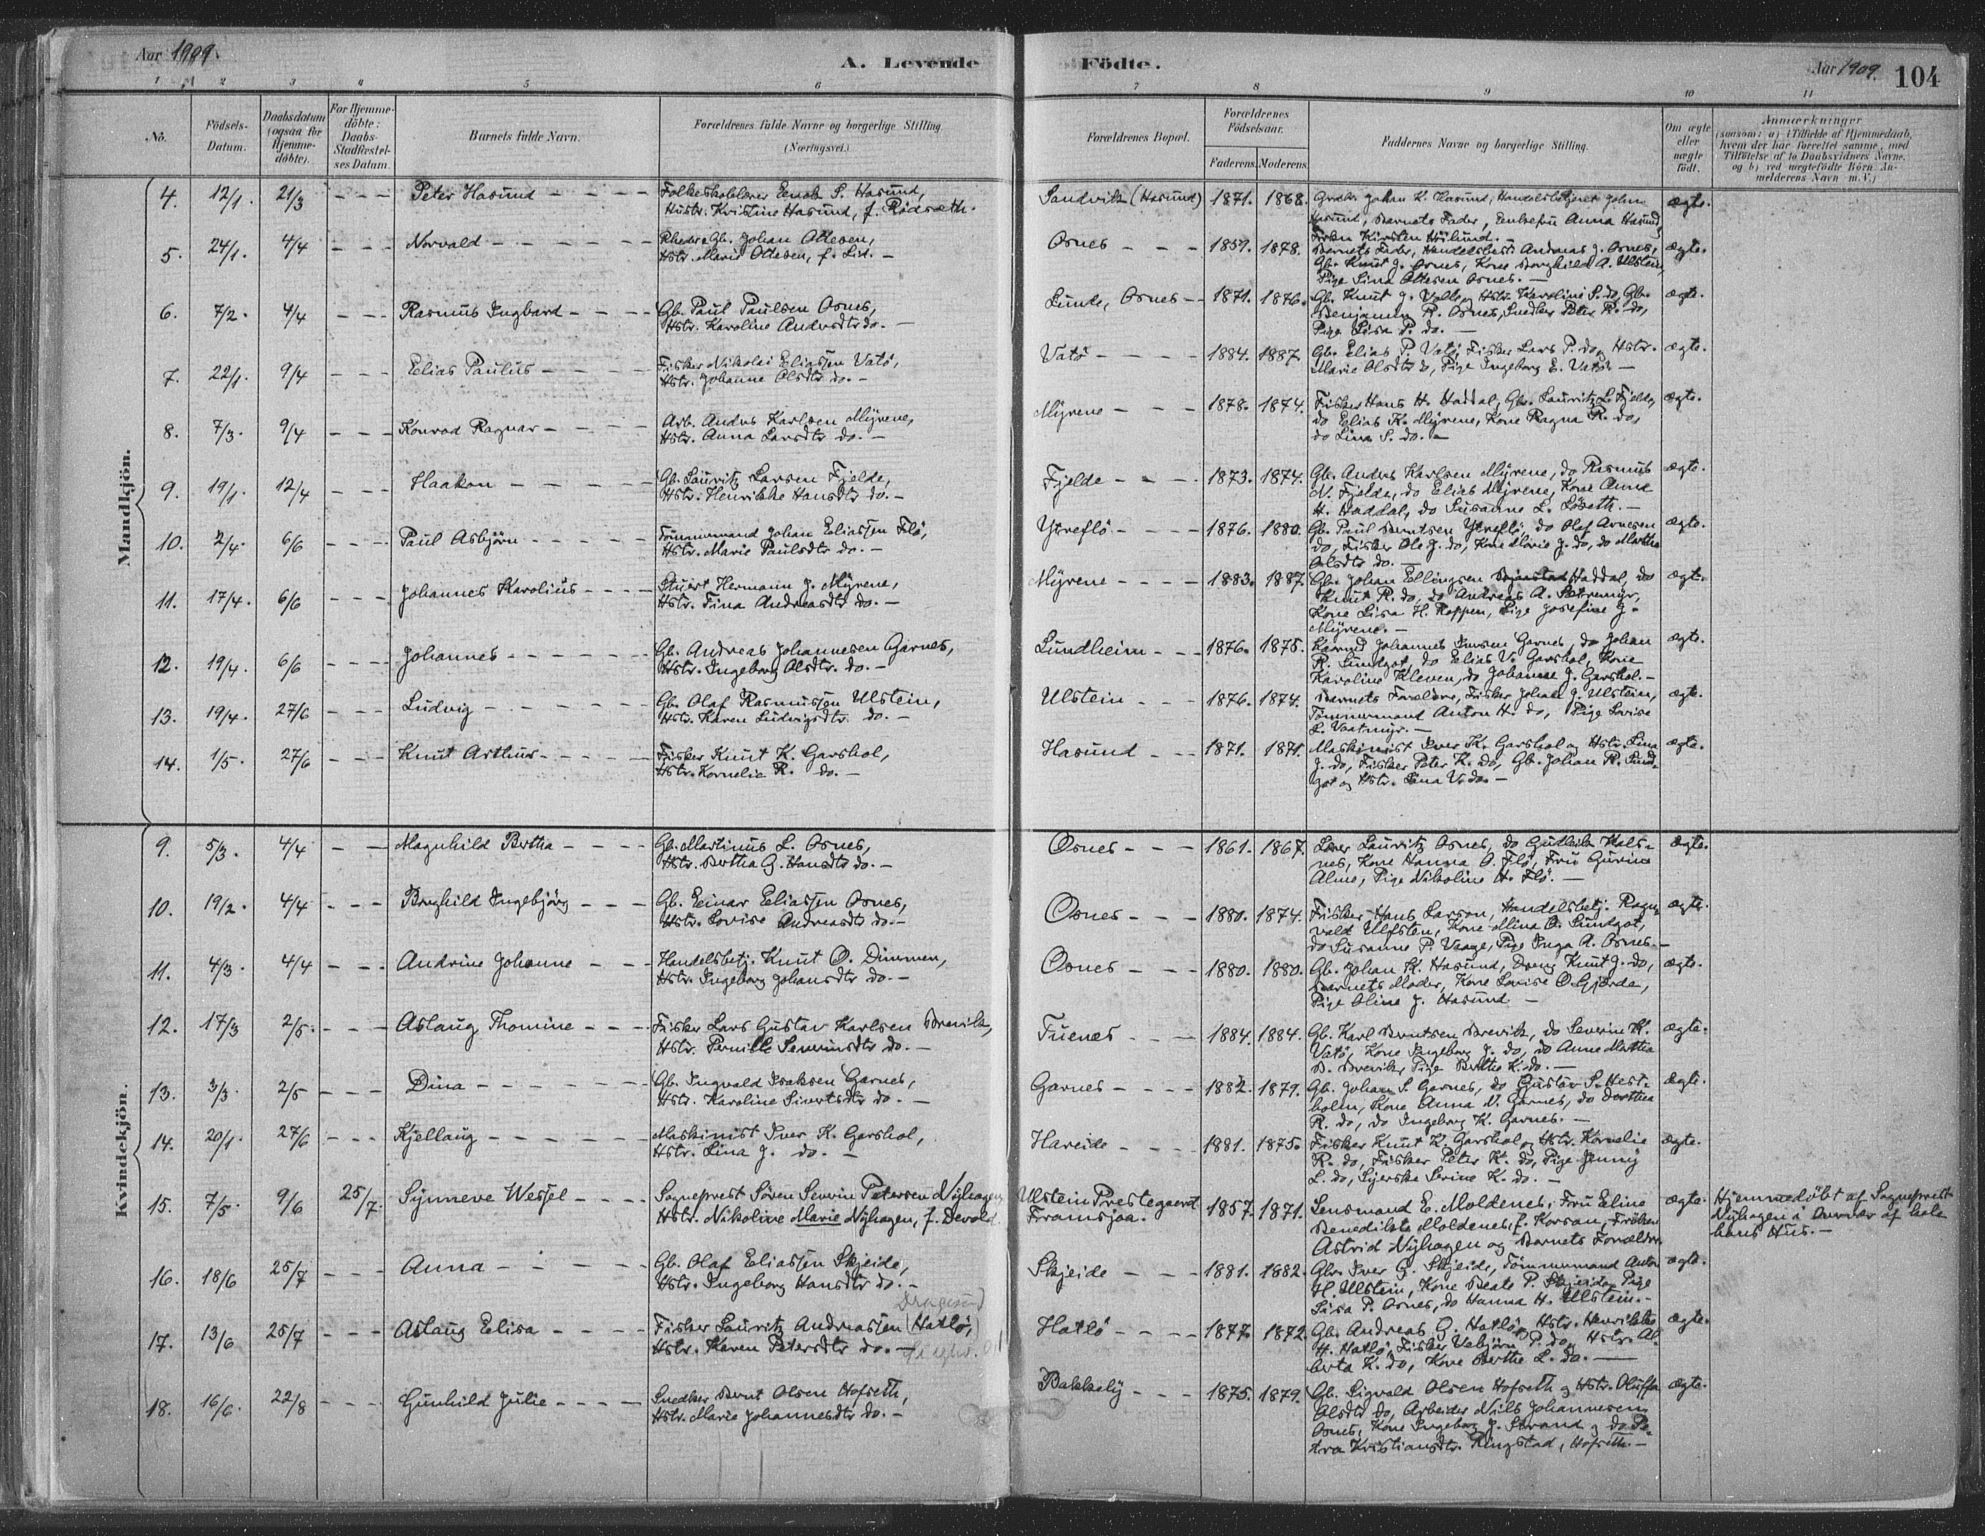 Aar 1909.
A. Levende Födte.
Aar 1909. 104
1 2 3 4 5 6 7 8 9 10 11
No.
Födsels-Datum.
Daabsdatum (ogsaa for Hjemme-döbte).
For Hjemme-döbte: Daabs-Stadfæstel-ses Datum.
Barnets fulde Navn.
Forældrenes fulde Navne og borgerlige Stilling (Næringsvei.)
Forældrenes Bopæl.
Forældrenes Födselsaar.
Faderens. Moderens.
Faddernes Navne og borgerlige Stilling.
Om ægte eller uægte födt.
Anmærkninger
(saasom: a) i Tilfælde af Hjemmedaab, hvem der har forrettet samme, med Tilföielse af to Daabsvidners Navne, og b) ved uægtefödte Börn Anmelderens Navn m. V.)
Mandkjön.
4. 12/1. 21/3 - - - Peter Hasund - - - -
Folkeskolelærer Enok S. Hasund,
Hustr. Kristine Hasund, f. Rödsæth.
Sandvik (Hasund) 1871. 1868.
Gaardbr. Johan K. Hasund, Handelsbetjent John
Hasund, Barnets Fader, Anna Hasund,
Kirsten Höilund. -
ægte.
5. 24/1. 4/4 - - - Norvald - - - - -
Rheder Gb. Johan Ottesen,
Hstr. Marie Ottesen, f. Lid. -
Osnes - - - 1859. 1878.
Barnets Fader, Handelsbest. Andreas J. Osnes,
Gb. Knut J. Osnes, Kone Borghild A. Ulstein,
Pige Lina Ottesen Osnes. -
ægte.
6. 7/2. 4/4 - - - Rasmus Ingbard - - -
Gb. Paul Paulsen Osnes,
Hstr. Karoline Andersdtr do. -
Lunde, Osnes - - 1871. 1876.
Gb. Knut J. Valle og Hstr. Karoline S. do, Gb.
Benjamin R. Osnes, Snedker Peter R. do,
Pige Lisa P. do. -
ægte.
7. 22/1. 9/4 - - - Elias Paulus - - - -
Fisker Nikolai Eliassen Vatö,
Hstr. Johanne Olsdtr do. -
Vatö - - - - 1884. 1887
Gb. Elias P. Vatö, Fisker Lars P. do og Hstr.
Marie Olsdtr do, Pige Ingeborg E. Vatö. -
ægte.
8. 7/3. 9/4 - - - Konrad Ragnar - - - -
Arb. Anders Karlsen Myrene,
Hstr. Anna Larsdtr do. -
Myrene - - - 1878. 1874.
Fisker Hans H. Haddal, Gb. Lauritz L. Fjelde,
do Elias K. Myrene, Kone Ragna R. do,
do Lina S. do. -
ægte.
9. 19/1. 12/4 - - - Haakon - - - - -
Gb. Lauritz Larsen Fjelde,
Hstr. Henrikke Hansdtr do. -
Fjelde - - - 1873. 1874.
Gb. Anders Karlsen Myrene, do Rasmus
N. Fjelde, do Elias Myrene, Kone Anna
H. Haddal, do Susanne L. Löseth. -
ægte.
10. 2/4. 6/6 - - - Paul Asbjörn - - - - -
Tömmermand Johan Eliassen Flö,
Hstr. Marie Paulsdtr do. -
Ytreflö - - - - 1876. 1880.
Gb. Paul Berntsen Ytreflö, do Olaf Arnesen
do, Fisker Ole J. do, Kone Marie J. do, do Martha
Olsdtr do. -
ægte.
11. 17/4. 6/6 - - - Johannes Karolius - - - -
Stuert Hermann J. Myrene,
Hstr. Tina Andreasdtr do. -
Myrene - - - - 1883. 1887.
Gb. Johan Ellingsen Haddal, do
Knut R. do, do Andreas A. Sætremyr,
Kone Lisa H. Roppen, Pige Josefine J.
Myrene. -
ægte.
12. 19/4. 6/6 - - - Johannes - - - - - -
Gb. Andreas Johannesen Garnes,
Hstr. Ingeborg Olsdtr. do. -
Lundheim - - - 1876. 1875.
Kaarmd Johannes Iversen Garnes, do Johan
R. Sundgot, do Elias V. Garshol, Kone
Karoline Kleven, do Johanne J. Garshol. -
ægte.
13. 19/4. 27/6 - - - Ludvig - - - - - -
Gb. Olaf Rasmussen Ulstein,
Hstr. Karen Ludvigsdtr. do. -
Ulstein - - - 1876. 1874.
Barnets Forældre, Fisker Johan J. Ulstein,
Tömmermand Anton H. do, Pige Lovise
L. Vaatmyr. -
ægte.
14. 1/5. 27/6 - - - Knut Arthur - - - - -
Fisker Knut K. Garshol,
Hstr. Kornelia R. do. -
Hasund - - - 1871. 1871.
Maskinist Iver K. Garshol og Hstr. Lina
J. do, Fisker Peter K. do, Gb. Johan R. Sund-
got og Hstr. Lina V. do. -
ægte.
Kvindekjön.
9. 5/3. 4/4 - - Magnhild Bertha - - - -
Gb. Martinus L. Osnes,
Hstr. Bertha G. Hansdtr do. -
Osnes - - - 1861. 1867.
Lærer Lauritz Osnes, do Gudleik Hals-
nes, Kone Hanna O. Flö, Fru Gurine
Alme, Pige Nikoline H. Flö. -
ægte.
10. 19/2. 4/4 - - - Borghild Ingebjörg - - -
Gb. Einar Eliassen Osnes,
Hstr. Lovise Andreasdtr do. -
Osnes - - - 1880. 1874.
Fisker Hans Larson, Handelsbetj. Ragn-
vald Ulfsten, Kone Mina O. Sundgot,
do Susanne P. Vaage, Pige Inga A. Osnes. -
ægte.
11. 4/3. 4/4 - - - Andrine Johanne - - -
Handelsbetj. Knut O. Dimmen,
Hstr. Ingeborg Johansdtr do. -
Osnes - - - 1880. 1880.
Gb. Johan K. Hasund, Dreng Knut J. do,
Barnets Moder, Kone Lovise O. Gjerde,
Pige Oline J. Hasund -
ægte.
12. 17/3 2/5. - - - Aslaug Thomine - - -
Fisker Lars Gustav Karlsen Brevik,
Hstr. Pernille Severinsdtr do. -
Tuenes - - - 1884. 1884.
Gb. Karl Berntsen Brevik, do Severin K.
Vatö, Kone Ingeborg J. do, do Anne Martha
B. Brevik, Pige Berthe K. do. -
ægte.
13. 3/3. 2/5 - - - Dina - - - - - -
Gb. Ingvald Isaksen Garnes,
Hstr. Karoline Sivertsdtr do. -
Garnes - - - - 1882. 1879.
Gb. Johan S. Garnes, do Gustav S. Hest-
holm, Kone Anna N. Garnes, do Dorthea
R. do, do Ingeborg K. Garnes. -
ægte.
14. 20/1. 27/6 - - - Kjellaug - - - - - -
Maskinist Iver K. Garshol,
Hstr. Lina J. do. -
Hareide - - - 1881. 1875.
Fisker Knut K. Garshol og Hstr. Kornelie
R. do, Fisker Peter K. do, Pige Jenny
L. do, Syerske Serine K. do. -
ægte.
15. 7/5. 9/6 25/7. Synneve Wessel - - - -
Sogneprest Sören Severin Petersen Nyhagen,
Hstr. Nikoline Marie Nyhagen, f. Devold.
Ulstein Prestegaard
Framsjaa. 1857. 1871.
Lensmand E. Moldenes, Fru Eline
Benedikte Moldenes f. Korsan, Fröken
Astrid Nyhagen og Barnets Forældre
ægte.
Hjemmedöbt af Sogneprest
Nyhagen i Nærvær af hele
hans Hus. -
16. 18/6 25/7 - - - Anna - - - - -
Gb. Olaf Eliassen Skjeide,
Hstr. Ingeborg Hansdtr do. -
Skjeide - - - 1881. 1882.
Gbr. Iver G. Skjeide, Tömmermand Anton
H. Ulstein, Kone Beate P. Skjeide, Pige
Lisa P. Osnes, do Hanna H. Ulstein. -
ægte.
17. 13/6 25/7 - - - Aslaug Elisa - - - -
Dragsund
Fisker Lauritz Andreassen (Hatlö,)
Hstr. Karen Petersdtr do. -
Hatlö - - - - 1877. 1872.
Gb. Andreas G. Hatlö, Hstr. Henrikke
H. Hatlö, Fisker Vebjörn P. do, Hstr. Al-
berta K. do, Kone Berthe L. do. -
ægte.
18. 16/6. 22/8 - - - Gunhild Julie - - - -
Snedker Bernt Olsen Hofseth,
Hstr. Marie Johannesdtr do. -
Bakkely - - - 1875. 1879.
Gb. Sigvald Olsen Hofseth og Hstr. Oluffa
Olsdtr do, Arbeider Niels Johannesen
Osnes, Kone Ingeborg J. Strand og do Pe-
tra Kristiansdtr. Ringstad, Hofseth. -
ægte.